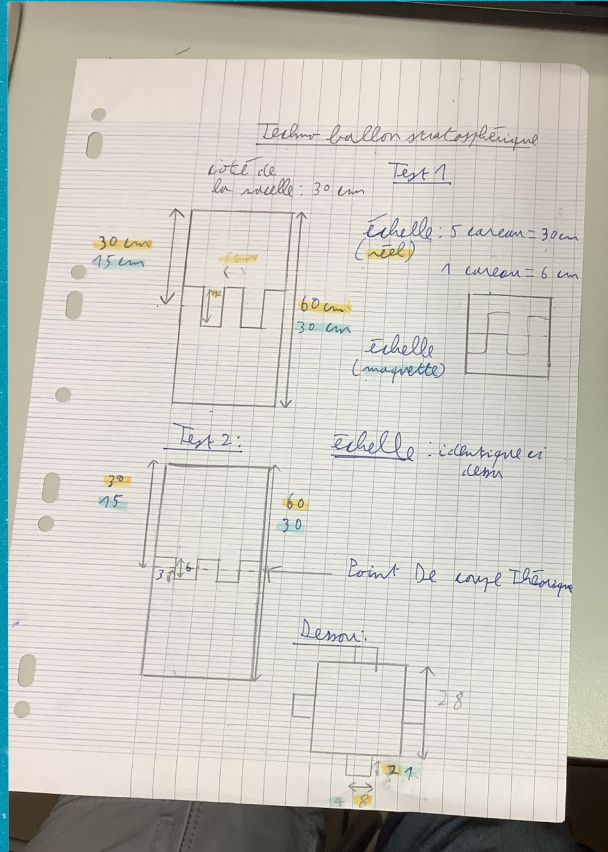 Techno ballon stratosphérique
côté de
la nacelle : 30 cm
Test 1
30 cm
15 cm
60 cm
30 cm
échelle : 5 careau = 30 cm
(réel)
1 careau = 6 cm
échelle
(maquette)
Test 2 :
échelle : identique ci
dessu
30
15
60
30
3
6
Point De coupe Théorique
Dessou :
28
2 1
4 8